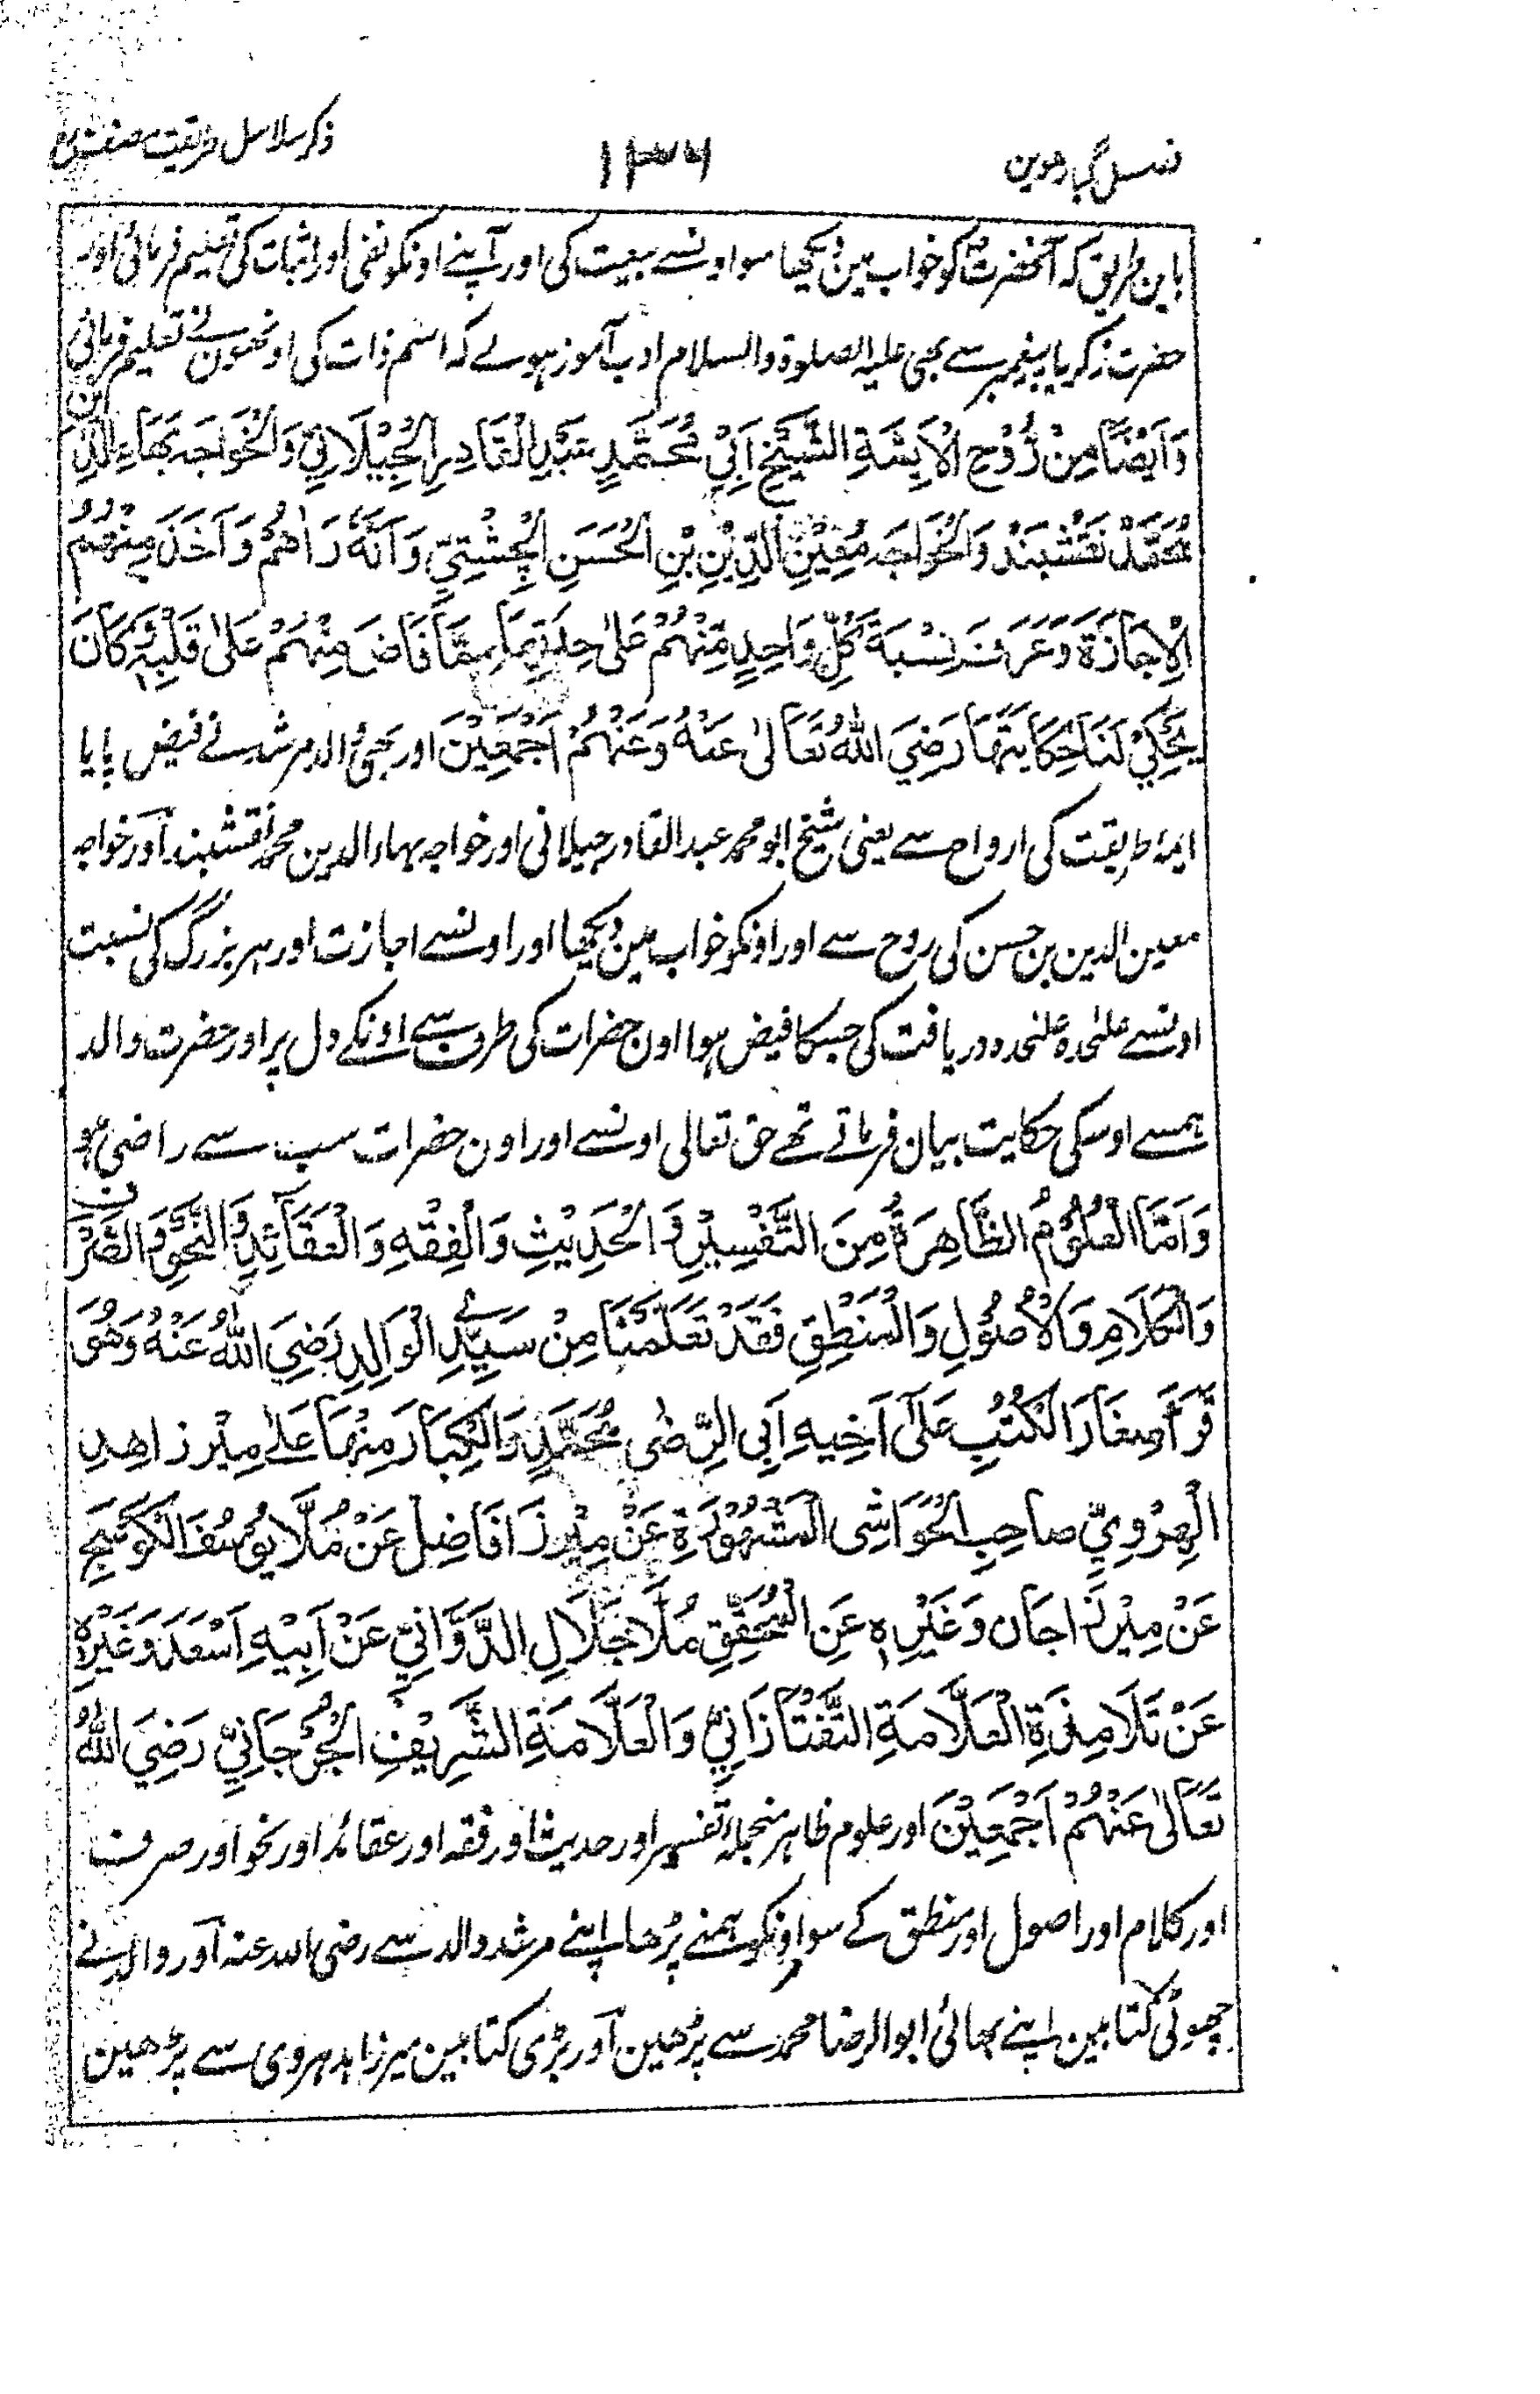 فصل گیارہوین
۱۳۶
ذکر سلاسل طریقت مصنف رح
باین طریق کہ آنحضرتؐ کو خواب مین دیکھا سو اونسے بیعت کی اور آپنے اونکو نفی اور اثبات کی تعلیم فرمائی اور
حضرت زکریا پیغمبر سے بھی علیہ الصلوۃ والسلام ادب آموز ہوے کہ اسم ذات کی اونھون نے تعلیم فرمائی
وَاَیْضًا مِنْ رُّوْحِ الْاَئِمَّةِ الشَّیْخِ اَبِیْ مُحَمَّدٍ عَبْدِ الْقَادِرِ الْجِیْلَانِیِّ وَالْخَوَاجَه بَهَاءِ الدِّیْنِ
مُحَمَّدْ نَقْشْبَنْدْ وَالْخَوَاجَه مُعِیْنِ الدِّیْنِ بْنِ الْحَسَنِ الْچِشْتِیِّ وَاَنَّهٗ رَاٰهُمْ وَاَخَذَ مِنْهُمُ
الْاِجَازَةَ وَعَرَفَ نِسْبَةَ كُلِّ وَاحِدٍ مِّنْهُمْ عَلٰی حِدَتِهَا مِمَّا فَاضَ مِنْهُمْ عَلٰی قَلْبِهٖ كَانَ
یَحْكِیْ لَنَا حِكَایَتَهَا رَضِیَ اللهُ تَعَالٰی عَنْهُ وَعَنْهُمْ اَجْمَعِیْنَ اور بھی والد مرشد نے فیض پایا
ایمۂ طریقت کی ارواح سے یعنی شیخ ابو محمد عبد القادر جیلانی اور خواجہ بہاء الدین محمد نقشبند اور خواجہ
معین الدین بن حسن کی روح سے اور اونکو خواب مین دیکھا اور اونسے اجازت اور ہر بزرگ کی نسبت
اونسے علٰحدہ علٰحدہ دریافت کی جسکا فیض ہوا اون حضرات کی طرف سے اونکے دل پر اور حضرت والد
ہمسے اوسکی حکایت بیان فرماتے تھے حق تعالی اونسے اور اون حضرات سب سے راضی ہو
وَاَمَّا الْعُلُوْمُ الظَّاهِرَةُ مِنَ التَّفْسِیْرِ وَالْحَدِیْثِ وَالْفِقْهِ وَالْعَقَآئِدِ وَالنَّحْوِ وَالصَّرْفِ
وَالْكَلَامِ وَالْاُصُوْلِ وَالْمَنْطِقِ فَقَدْ تَعَلَّمْنَا مِنْ سَیِّدِی الْوَالِدِ رَضِیَ اللهُ عَنْهُ وَهُوَ
قَرَأَ صِغَارَ الْكُتُبِ عَلٰی اَخِیْهِ اَبِی الرِّضٰی مُحَمَّدٍ وَالْكِبَارَ مِنْهَا عَلٰی مِیْر زاهِدِ
الْهِرْوِیِّ صاحِبِ الْحَوَاشِی الْمَشْهُوْرَةِ عَنْ مِیْرزَا فَاضِلْ عَنْ مُلَّا یُوْسُفَ الْكَوْسَجِ
عَنْ مِیْرْزَا جَان وَغَیْرِهٖ عَنِ الْمُحَقِّقِ مُلَّا جَلَالِ الدَّوَّانِیِّ عَنْ اَبِیْهِ اَسْعَدَ وَغَیْرِهٖ
عَنْ تَلَامِذَةِ الْعَلَّامَةِ التَّفْتَازَانِیِّ وَالْعَلَّامَةِ الشَّرِیْفِ الْجُرْجَانِیِّ رَضِیَ اللهُ
تَعَالٰی عَنْهُمْ اَجْمَعِیْنَ اور علوم ظاہر منجملہ تفسیر اور حدیث اور فقہ اور عقائد اور نحو اور صرف
اور کلام اور اصول اور منطق کے سو اونکو ہمنے پڑھا اپنے مرشد والد سے رضی اللہ عنہ اور والد نے
چھوٹی کتابین اپنے بھائی ابو الرضا محمد سے پڑھین اور بڑی کتابین میر زاہد ہروی سے پڑھین